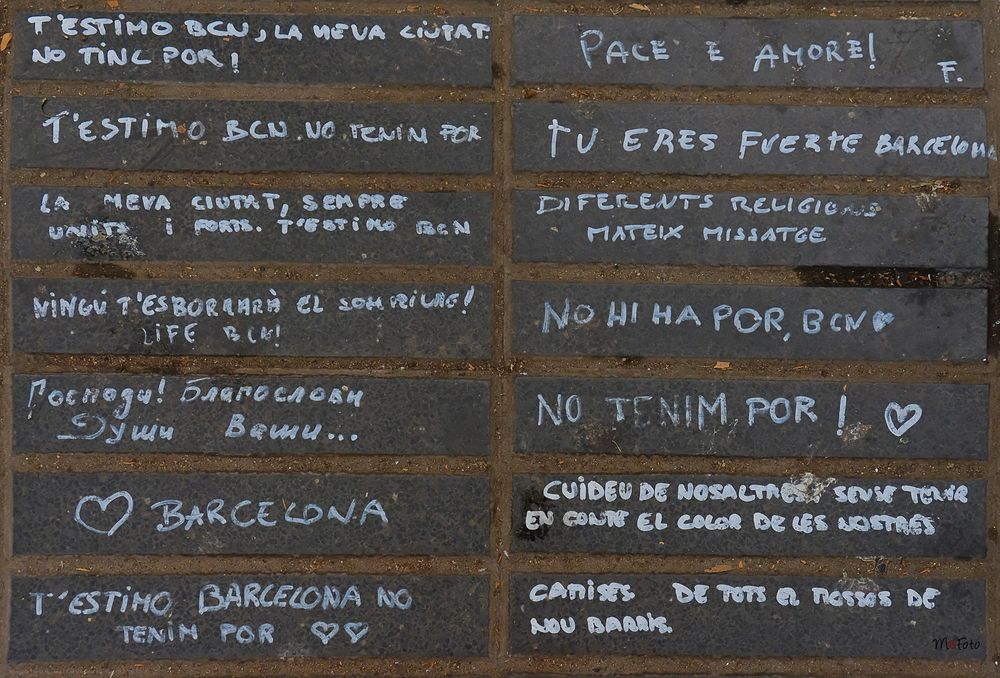 T'ESTIMO BCN, LA MEVA CIUTAT.
NO TINC POR!
T'ESTIMO BCN. NO TENIM POR
LA MEVA CIUTAT, SEMPRE
UNITS I FORTS. T'ESTIMO BCN
NINGÚ T'ESBORRARÀ EL SOMRIURE!
LIFE BCN!
Господи! Благослови
Души Ваши...
♡ BARCELONA
T'ESTIMO BARCELONA NO
TENIM POR ♡♡
PACE E AMORE!
F.
TU ERES FUERTE BARCELONA
DIFERENTS RELIGIONS
MATEIX MISSATGE
NO HI HA POR, BCN ♥
NO TENIM POR! ♡
CUIDEU DE NOSALTRES SENSE TENIR
EN CONTE EL COLOR DE LES NOSTRES
CAMISES DE TOTS EL MOSSOS DE
NOU BARRIS.
MsFoto